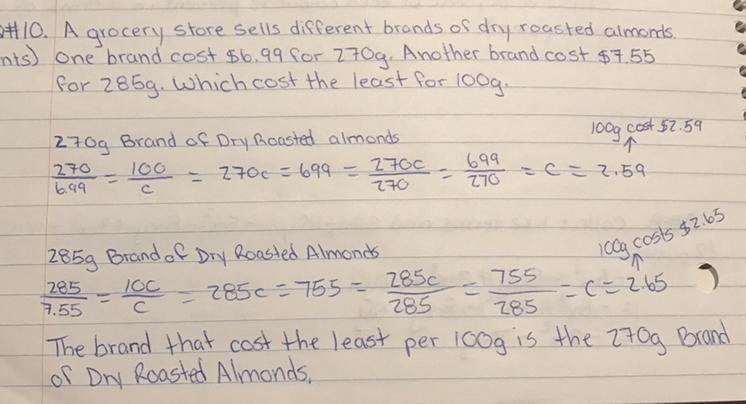 #10. A grocery store sells different brands of dry roasted almonds.
nts) One brand cost $6.99 for 270g. Another brand cost $7.55
for 285g. Which cost the least for 100g.
270g Brand of Dry Roasted almonds
100g cost $2.59
↑
270/6.99 = 100/c = 270c = 699 = 270c/270 = 699/270 = c = 2.59
285g Brand of Dry Roasted Almonds
100g costs $2.65
↑
285/7.55 = 100/c = 285c = 755 = 285c/285 = 755/285 = c = 2.65
The brand that cost the least per 100g is the 270g Brand
of Dry Roasted Almonds.